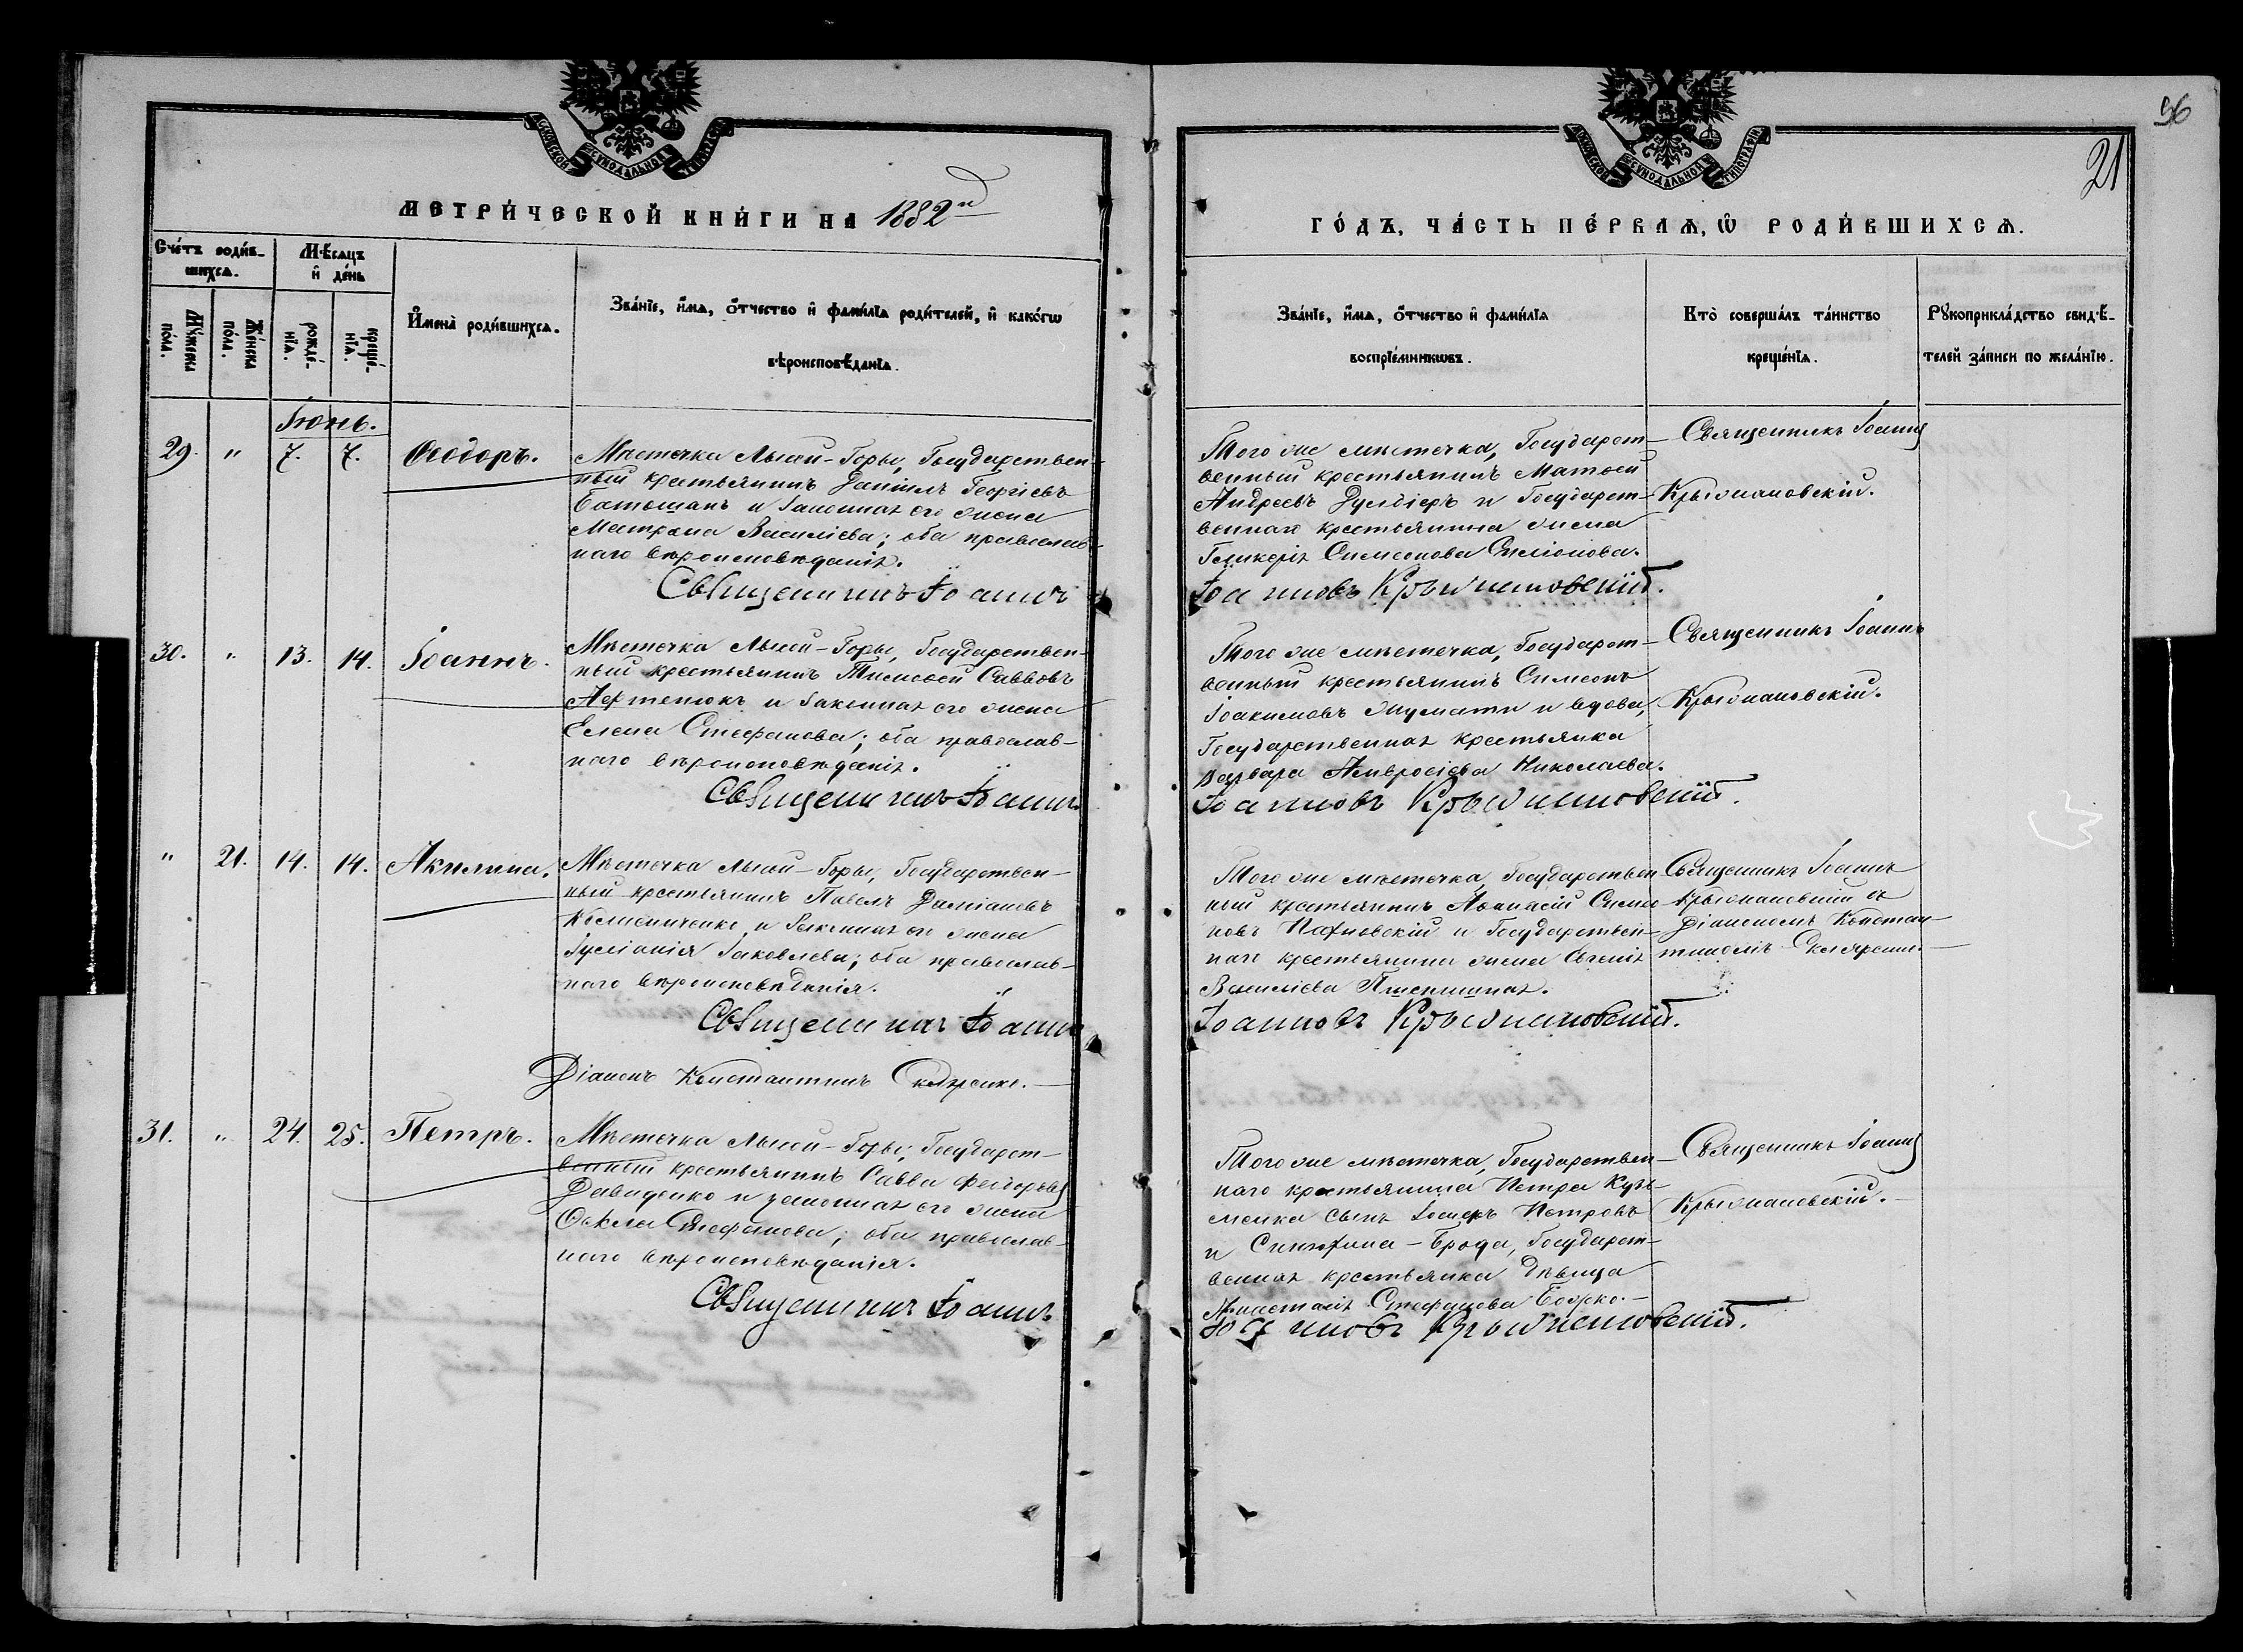 96
21
МОСКОВСКОЙ СУНОДАЛЬНОЙ ТИПОГРАФІИ
МОСКОВСКОЙ СУНОДАЛЬНОЙ ТИПОГРАФІИ
МЕТРИ́ЧЕСКОЙ КНИ́ГИ НА 1882й
ГО́ДЪ, ЧА́СТЬ ПЕ́РВАѦ, Ѡ РОДИ́ВШИХСѦ.
Сче́тъ роди́в-
шихсѧ.
Мѣ́сѧцъ
и де́нь
Му́жеска по́ла.
Же́нска по́ла.
рожде́-нїѧ.
креще́-нїѧ.
Имена̀ роди́вшихсѧ.
Зва́нїе, и́мѧ, о́тчество и фами́лїѧ роди́телей, и како́гѡ
вѣроисповѣ́данїѧ.
Зва́нїе, и́мѧ, о́тчество и фами́лїѧ
воспрїе́мникѡвъ.
Кто̀ соверша́лъ та́инство
креще́нїѧ.
Рꙋкоприкла́дство свидѣ́-
телей за́писи по жела́нїю.
Іюнь.
29. " 7. 7. Ѳеодоръ.
Мѣстечка Лысой-Горы, Государствен-
ный крестьянинъ Даніилъ Георгіевъ
Батошанъ и законная его жена
Матрона Василіева; оба православ-
наго вѣроисповѣданія.
Священникъ Іоаннъ
Того же мѣстечка, Государст-
венный крестьянинъ Матѳей
Андреевъ и Государст-
веннаго крестьянина жена
Гликерія Симеонова
Іоанновъ Крыжановскій.
Священникъ Іоаннъ
Крыжановскій.
30. " 13. 14. Іоаннъ.
Мѣстечка Лысой-Горы, Государствен-
ный крестьянинъ Тимоѳей Саввовъ
Афтенюкъ и законная его жена
Елена Стефанова; оба православ-
наго вѣроисповѣданія.
Священникъ Іоаннъ
Того же мѣстечка, Государст-
венный крестьянинъ Симеонъ
Іоакимовъ и вдова,
Государственная крестьянка
Варвара Амвросіева Николаева.
Іоанновъ Крыжановскій.
Священникъ Іоаннъ
Крыжановскій.
" 21. 14. 14. Акилина.
Мѣстечка Лысой-Горы, Государствен-
ный крестьянинъ Павелъ Даміановъ
и законная его жена
Іуліанія Іаковлева; оба православ-
наго вѣроисповѣданія.
Священникъ Іоаннъ
Діаконъ Константинъ Скляренко.
Того же мѣстечка, Государствен
ный крестьянинъ Аѳанасій Симео
новъ и Государствен-
наго крестьянина жена Евгенія
Василіева Пшеничная.
Іоанновъ Крыжановскій.
Священникъ Іоаннъ
Крыжановскій съ
Діакономъ Констан-
тиномъ Скляренко.
31. " 24. 25. Петръ.
Мѣстечка Лысой-Горы, Государст-
венный крестьянинъ Савва Ѳеодоровъ
Давиденко и законная его жена
Ѳекла Стефанова; оба православ-
наго вѣроисповѣданія.
Священникъ Іоаннъ
Того же мѣстечка, Государствен-
наго крестьянина Петра Кузь-
менка сынъ Петровъ
и Синюхина-Брода, Государст-
венная крестьянка дѣвица
Анастасія Стефанова Бойко.
Іоанновъ Крыжановскій.
Священникъ Іоаннъ
Крыжановскій.